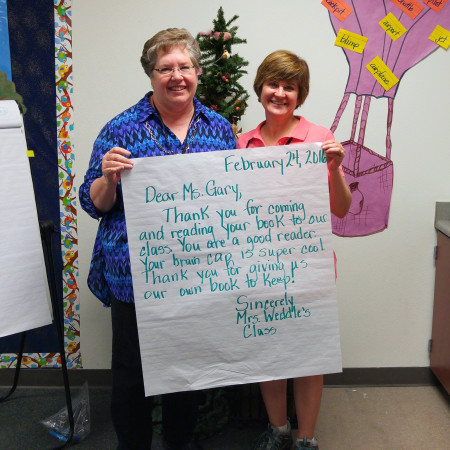 February 24, 2016
Dear Ms. Gary,
Thank you for coming
and reading your book to our
class. You are a good reader.
Your brain cap is super cool.
Thank you for giving us
our own book to keep!
Sincerely
Mrs. Weddle's
Class
blimp
airport
airplane
jet